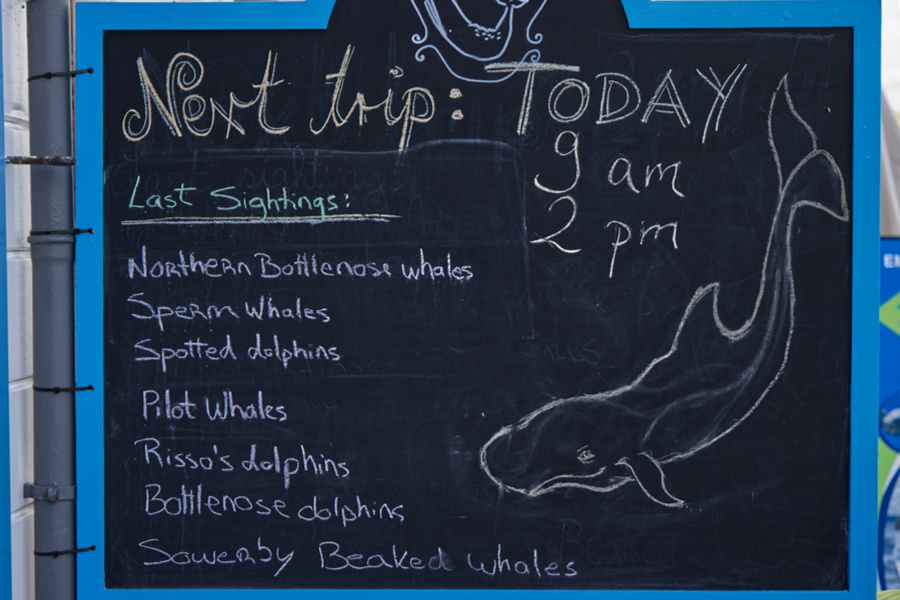 Next trip: TODAY
9 am
2 pm
Last Sightings:
Northern Bottlenose whales
Sperm Whales
Spotted dolphins
Pilot Whales
Risso's dolphins
Bottlenose dolphins
Sowerby Beaked whales
EM